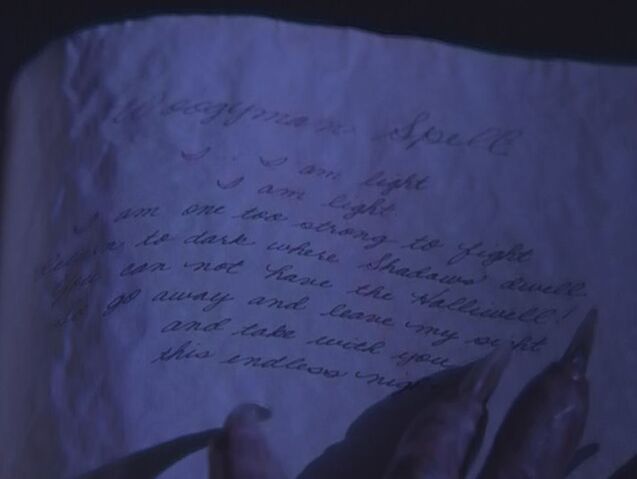 Woogyman Spell
I.. I am light
I am light
I am one too strong to fight
Return to dark where Shadows dwell
You can not have the Halliwell!
So go away and leave my sight
and take with you
this endless night